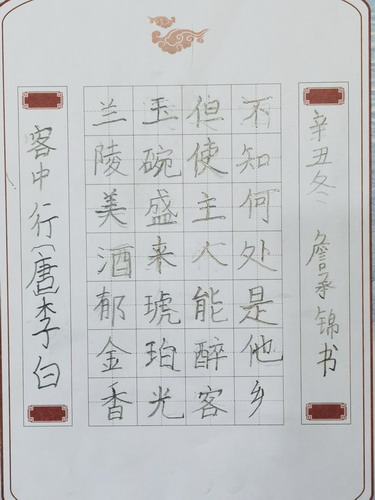 客中行（唐李白
兰陵美酒郁金香
玉碗盛来琥珀光
但使主人能醉客
不知何处是他乡
辛丑冬 詹承锦书